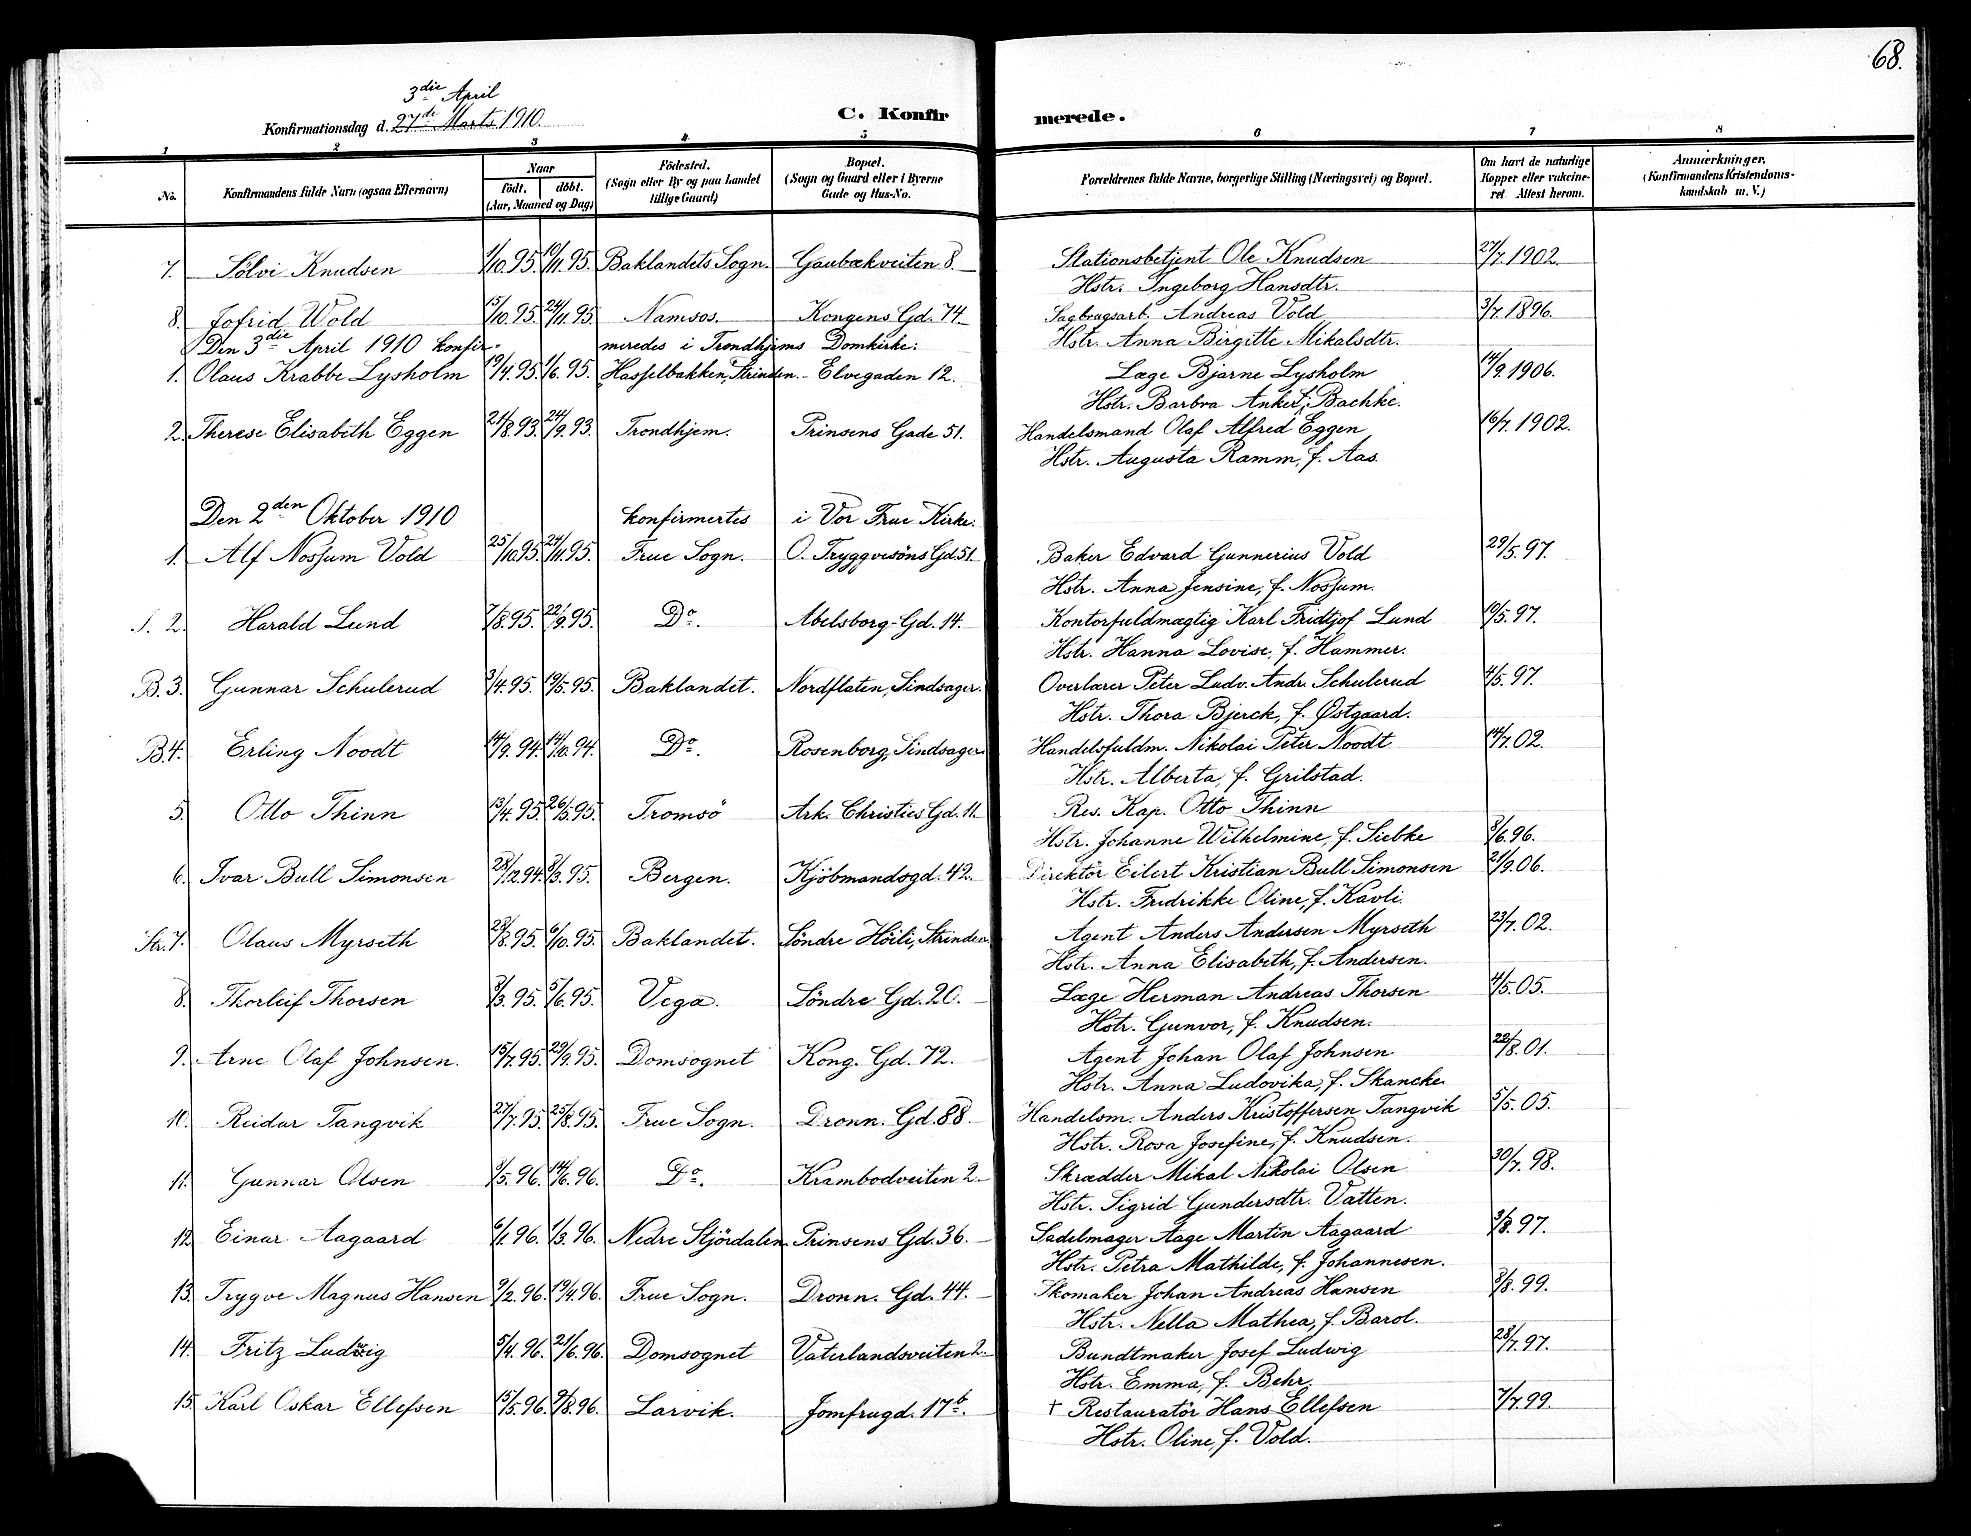 68.
3die April
Konfirmationsdag d. 27de Marts 1910.
C. Konfirmerede.
1 2 3 4 5 6 7 8
No.
Konfirmandens fulde Navn (ogsaa Efternavn)
Naar
födt. döbt.
(Aar, Maaned og Dag)
Födested.
(Sogn eller By og paa Landet
tillige Gaard)
Bopæl.
(Sogn og Gaard eller i Byerne
Gade og Hus-No.
Forældrenes fulde Navne, borgerlige Stilling (Næringsvei) og Bopæl.
Om havt de naturlige
Kopper eller vaccine-
ret. Attest herom.
Anmærkninger.
(Konfirmandens Kristendoms-
kundskab m. V.)
7. Sölvi Knudsen 1/10.95. 10/11.95. Baklandets Sogn. Gaubækveiten 8. Stationsbetjent Ole Knudsen 27/7.1902.
Hstr. Ingeborg Hansdtr.
8. Jofrid Wold 15/10.95. 24/11.95. Namsos. Kongens Gd. 74. Sagbrugsarb. Andreas Vold 3/7.1896.
Hstr. Anna Birgitte Mikalsdtr.
Den 3die April 1910 konfirmeredes i Trondhjems Domkirke:
1. Olaus Krabbe Lysholm 19/4.95. 1/6.95. Hasselbakken, Strinden. Elvegaden 12. Læge Bjarne Lysholm 14/9.1906.
Hstr. Barbra Anker, f. Bachke.
2. Therese Elisabeth Eggen 21/8.93. 24/9.93. Trondhjem. Prinsens Gade 51. Handelsmand Olaf Alfred Eggen 16/7.1902.
Hstr. Augusta Ramm, f. Aas.
Den 2den Oktober 1910 konfirmertes i Vor Frue Kirke:
1. Alf Nossum Vold 25/10.95. 24/11.95. Frue Sogn. O. Tryggvesöns Gd. 51. Baker Edvard Gunnerius Vold 29/5.97.
Hstr. Anna Jensine, f. Nossum.
2. Harald Lund 7/8.95. 22/9.95. Do. Abelsborg-Gd. 14. Kontorfuldmægtig Karl Fridtjof Lund 10/5.97.
Hstr. Hanna Lovise, f. Hammer.
B. 3. Gunnar Schulerud 3/4.95. 19/5.95. Baklandet. Nordflaten, Sindsager. Overlærer Peter Ludv. Andr. Schulerud 4/5.97.
Hstr. Thora Bjerck, f. Østgaard.
B. 4. Erling Noodt 14/9.94. 14/10.94. Do. Rosenborg, Sindsager. Handelsfuldm. Nikolai Peter Noodt 14/7.02.
Hstr. Alberta, f. Grilstad.
5. Otto Thinn 13/4.95. 26/5.95. Tromsö Ark. Christies Gd. 11. Res. Kap. Otto Thinn
Hstr. Johanne Wilhelmine, f. Siebke 8/6.96.
6. Ivar Bull Simonsen 28/12.94. 3/3.95. Bergen. Kjöbmandsgd. 42. Direktör Eilert Kristian Bull Simonsen 21/9.06.
Hstr. Fredrikke Oline, f. Kavli.
Str. 7. Olaus Myrseth 23/8.95. 6/10.95. Baklandet. Söndre Höili, Strinden Agent Anders Andersen Myrseth 23/7.02.
Hstr. Anna Elisabeth, f. Andersen.
8. Thorleif Thorsen 3/3.95. 5/6.95. Vega. Söndre Gd. 20. Læge Herman Andreas Thorsen 4/5.05.
Hstr. Gunvor, f. Knudsen.
9. Arne Olaf Johnsen. 15/7.95. 29/9.95. Domsognet Kong. Gd. 72. Agent Johan Olaf Johnsen 22/8.01.
Hstr. Anna Ludovika, f. Skancke
10. Reidar Tangvik 27/7.95. 25/8.95. Frue Sogn. Dronn. Gd. 88. Handelsm. Anders Kristoffersen Tangvik 5/5.05.
Hstr. Rosa Josefine, f. Knudsen.
11. Gunnar Olsen 3/5.96. 14/6.96. Do. Krambodveiten 2. Skrædder Mikal Nikolai Olsen 30/7.98.
Hstr. Sigrid Gundersdtr. Vatten.
12. Einar Aagaard 6/1.96. 1/3.96. Nedre Stjördalen. Prinsens Gd. 36. Sadelmager Aage Martin Aagaard 3/8.97.
Hstr. Petra Mathilde, f. Johannesen.
13. Trygve Magnus Hansen 9/2.96. 19/4.96. Frue Sogn. Dronn. Gd. 44. Skomaker Johan Andreas Hansen 3/8.99.
Hstr. Nella Mathea, f. Barol.
14. Fritz Ludwig 5/4.96. 21/6.96. Domsognet Vaterlandsveiten 2. Bundtmaker Josef Ludwig 28/7.97.
Hstr. Emma, f. Behr.
15. Karl Oskar Ellefsen 15/5.96. 9/8.96. Larvik. Jomfrugd. 17b. † Restauratör Hans Ellefsen 7/7.99.
Hstr. Oline, f. Vold.